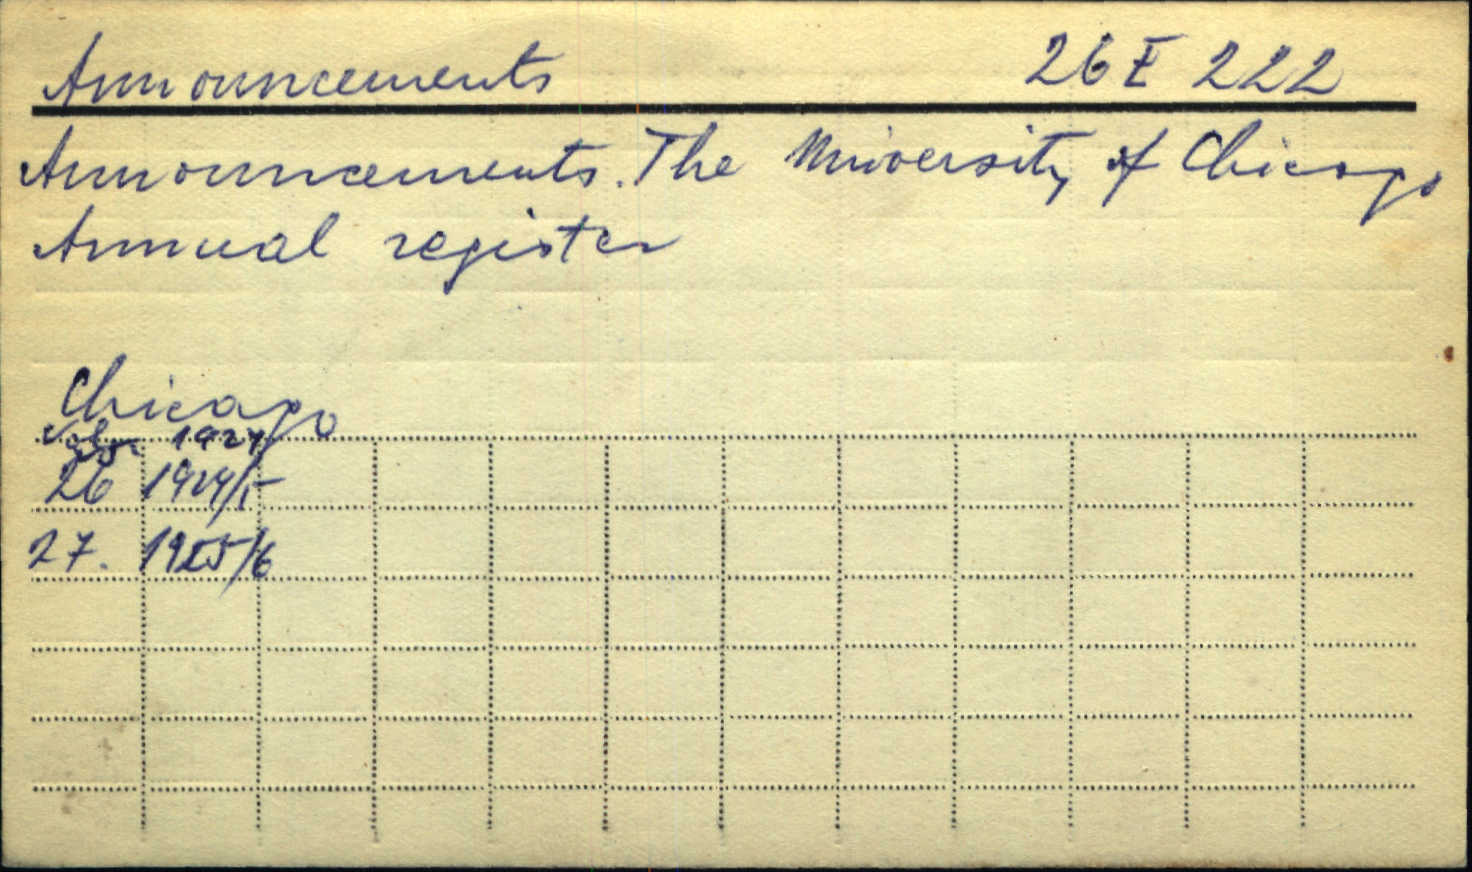 Announcements 26 E 222
Announcements. The University of Chicago
Annual register
Chicago
1924
26 1924/5
27. 1925/6